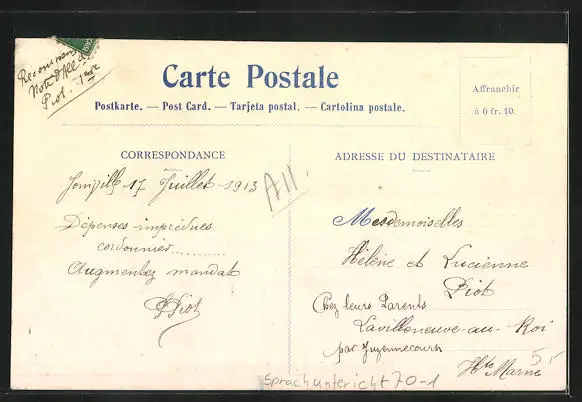 Note
Piot
Carte Postale
Postkarte. — Post Card. — Tarjeta postal. — Cartolina postale.
Affranchir
à 0 fr. 10.
CORRESPONDANCE
17 Juillet 1913
Dépenses imprévues
cordonnier..........
Augmentez mandat
Piot
All.
ADRESSE DU DESTINATAIRE
Mesdemoiselles
Hélène et Lucienne
Piot
Chez leurs Parents
Lavilleneuve-au-Roi
par Juzennecourt
Hte Marne
5,-
Sprachunterricht 70-1